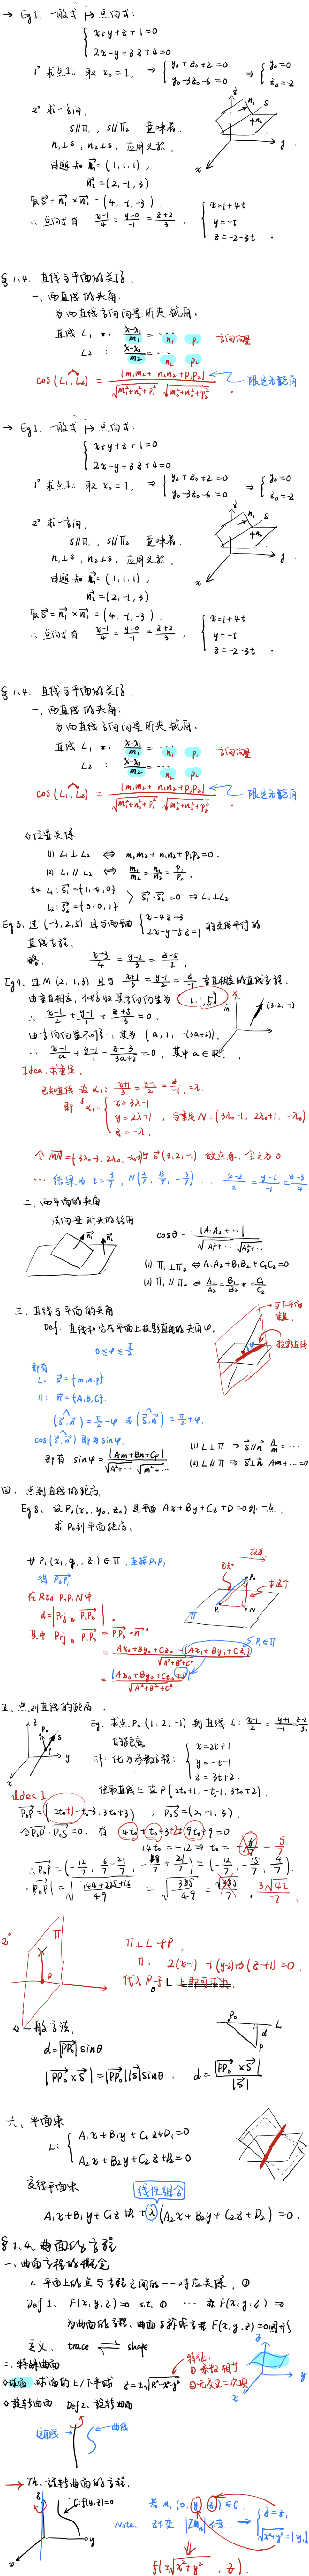 → Eg1. 一般式 ↦ 点向式:
{ x+y+z+1=0
2x-y+3z+4=0
1° 求点: 取 x₀=1, ⇒ { y₀+z₀+2=0
y₀-3z₀-6=0 ⇒ { y₀=0
z₀=-2
2° 求一方向.
s∥π₁, s∥π₂ 意味着.
n₁⊥s, n₂⊥s. 应用叉积.
由题知 n₁=(1,1,1),
n₂=(2,-1,3)
取s=n₁×n₂=(4,-1,-3).
∴ 点向式有 (x-1)/4=(y-0)/-1=(z+2)/3, { x=1+4t
y=-t
z=-2-3t.
§1.4. 直线与平面的关系.
一、两直线的夹角.
为两直线方向向量所夹锐角.
直线 L₁: (x-x₁)/m₁=… n₁ p₁ 方向向量
L₂: (x-x₂)/m₂=… n₂ p₂
cos(L₁,L₂)=|m₁m₂+n₁n₂+p₁p₂|/(√(m₁²+n₁²+p₁²) √(m₂²+n₂²+p₂²)) ← 限定为锐角
→ Eg1. 一般式 ↦ 点向式:
{ x+y+z+1=0
2x-y+3z+4=0
1° 求点: 取 x₀=1, ⇒ { y₀+z₀+2=0
y₀-3z₀-6=0 ⇒ { y₀=0
z₀=-2
2° 求一方向.
s∥π₁, s∥π₂ 意味着.
n₁⊥s, n₂⊥s. 应用叉积.
由题知 n₁=(1,1,1),
n₂=(2,-1,3)
取s=n₁×n₂=(4,-1,-3).
∴ 点向式有 (x-1)/4=(y-0)/-1=(z+2)/3, { x=1+4t
y=-t
z=-2-3t.
§1.4. 直线与平面的关系.
一、两直线的夹角.
为两直线方向向量所夹锐角.
直线 L₁: (x-x₁)/m₁=… n₁ p₁ 方向向量
L₂: (x-x₂)/m₂=… n₂ p₂
cos(L₁,L₂)=|m₁m₂+n₁n₂+p₁p₂|/(√(m₁²+n₁²+p₁²) √(m₂²+n₂²+p₂²)) ← 限定为锐角
位置关系
(1) L₁⊥L₂ ⇔ m₁m₂+n₁n₂+p₁p₂=0.
(2) L₁∥L₂ ⇔ m₁/m₂=n₁/n₂=p₁/p₂.
如 L₁: s₁={1,-4,0}
L₂: s₂={0,0,1} > s₁·s₂=0 ⇒ L₁⊥L₂
Eg3. 过(-3,2,5)且与两平面 { x-4z=3
2x-y-5z=1 的交线平行的
直线方程.
略. (x+3)/4=(y-2)/3=(z-5)/1.
Eg4. 过M(2,1,3)且与 (x+1)/3=(y-1)/2=z/-1 垂直相交的直线方程.
Idea. 求垂足.
已知直线 设 (x+1)/3=(y-1)/2=z/-1=λ.
即 { x=3λ-1
y=2λ+1
z=-λ.
, 令垂足 N:(3λ₀-1, 2λ₀+1, -λ₀)
… (x-2)/2=(y-1)/-1=(z-3)/4
二、两平面的夹角
法向量所夹的锐角
cosθ=|A₁A₂+…|/(√(A₁²+…) √(A₂²+…))
(1) π₁⊥π₂ ⇔ A₁A₂+B₁B₂+C₁C₂=0
(2) π₁∥π₂ ⇔ A₁/A₂=B₁/B₂=C₁/C₂
三、直线与平面的夹角
Def. 直线和它在平面上投影直线的夹角φ.
0≤φ≤π/2
与平面
垂直
投影直线
即有
L: s={m,n,p}
π: n={A,B,C}.
(s,n)=π/2-φ 或 (s,n)=π/2+φ.
cos(s,n) 即为 sinφ.
即有 sinφ=|Am+Bn+Cp|/(√(A²+…) √(m²+…))
(1) L⊥π ⇒ s∥n A/m=…
(2) L∥π ⇒ s⊥n Am+…=0
四、点到直线的距离.
Eg8. 设P₀(x₀,y₀,z₀)是平面 Ax+By+Cz+D=0外一点.
求P₀到平面距离.
∀P₁(x₁,y₁,z₁)∈π, 连接P₀P₁
得 P₀P₁
在Rt△P₀P₁N中
d=|Prj n P₁P₀|
其中 Prj n P₁P₀=P₁P₀·n°
=(Ax₀+By₀+Cz₀-(Ax₁+By₁+Cz₁))/√(A²+B²+C²) P₁∈π
=|Ax₀+By₀+Cz₀+D|/√(A²+B²+C²)
五、点到直线的距离.
Eg. 求点P₀(1,2,-1)到直线 L: (x-1)/2=(y+1)/-1=(z-2)/3
的距离
化为参数方程: { x=2t+1
y=-t-1
z=3t+2.
任取直线上一点P(2t₀+1,-t₀-1,3t₀+2).
idea 1
P₀P=(2t₀,-t₀-3,3t₀+3), P₀S=(2,-1,3).
令P₀P·P₀S=0. 有 4t₀+t₀+3+9t₀+9=0
14t₀=-12 ⇒ t₀=
2°
π⊥L于P,
π: 2(x-1)-1(y-2)+3(z+1)=0.
代入P于L
一般方法.
d=|PP₀|sinθ
|PP₀×s|=|PP₀||s|sinθ, d=|PP₀×s|/|s|
六、平面束
L: { A₁x+B₁y+C₁z+D₁=0
A₂x+B₂y+C₂z+D₂=0
线性组合
A₁x+B₁y+C₁z+D₁+λ(A₂x+B₂y+C₂z+D₂)=0.
§1.4. 曲面的方程
一、曲面方程的概念
1. 平面上的点与方程之间的一一对应关系. ①
Def 1. F(x,y,z)=0 s.t. ① 称F(x,y,z)=0
意义. trace ⇌ shape
二、特殊曲面
球面 球面的上/下半球 z=±√(R²-x²-y²)
特征:
① 系数相等
② 无交叉二次项
旋转曲面 Def2. 旋转曲面
直线 曲线
→ Th. 旋转曲面的方程.
C: f(y,z)=0
若 M₁(0,y₁,z₁)∈C.
Note. z不变, |ZM₀|不变. → { z=z₁
√(x²+y²)=|y₁|
f(±√(x²+y²), z).